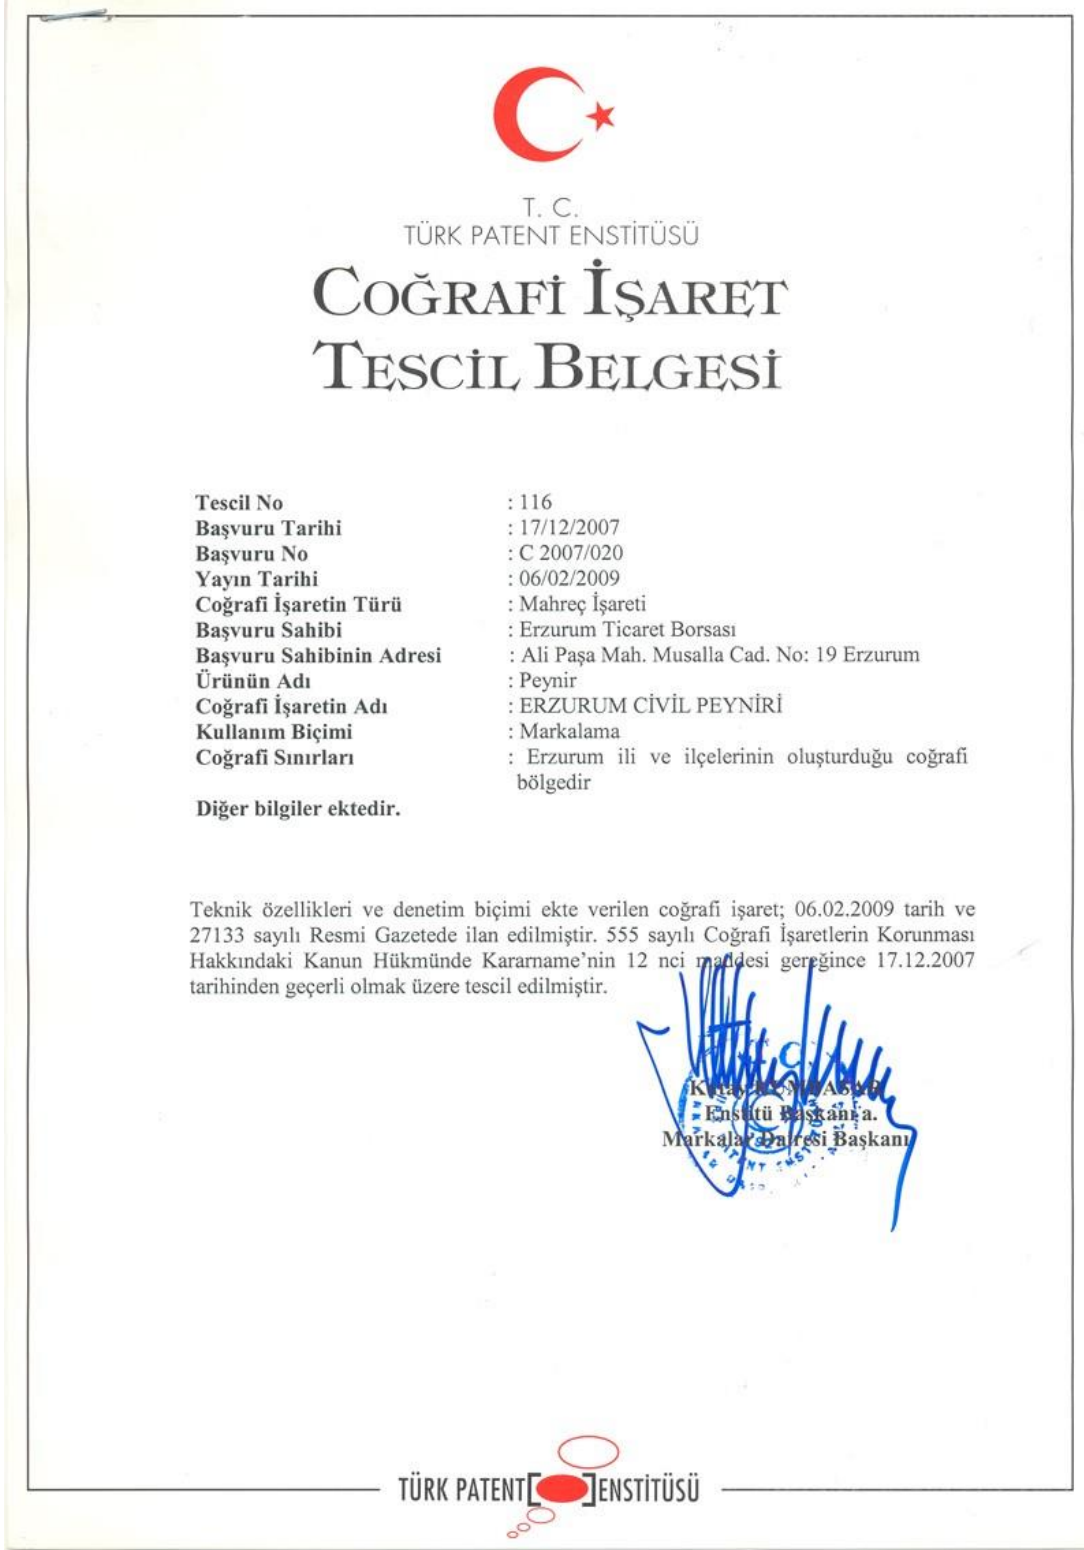 T. C.
TÜRK PATENT ENSTİTÜSÜ
COĞRAFİ İŞARET
TESCİL BELGESİ
Tescil No : 116
Başvuru Tarihi : 17/12/2007
Başvuru No : C 2007/020
Yayın Tarihi : 06/02/2009
Coğrafi İşaretin Türü : Mahreç İşareti
Başvuru Sahibi : Erzurum Ticaret Borsası
Başvuru Sahibinin Adresi : Ali Paşa Mah. Musalla Cad. No: 19 Erzurum
Ürünün Adı : Peynir
Coğrafi İşaretin Adı : ERZURUM CİVİL PEYNİRİ
Kullanım Biçimi : Markalama
Coğrafi Sınırları : Erzurum ili ve ilçelerinin oluşturduğu coğrafi
bölgedir
Diğer bilgiler ektedir.
Teknik özellikleri ve denetim biçimi ekte verilen coğrafi işaret; 06.02.2009 tarih ve
27133 sayılı Resmi Gazetede ilan edilmiştir. 555 sayılı Coğrafi İşaretlerin Korunması
Hakkındaki Kanun Hükmünde Kararname’nin 12 nci maddesi gereğince 17.12.2007
tarihinden geçerli olmak üzere tescil edilmiştir.
Enstitü Başkanı a.
Markalar Dairesi Başkanı
TÜRK PATENT[ ]ENSTİTÜSÜ